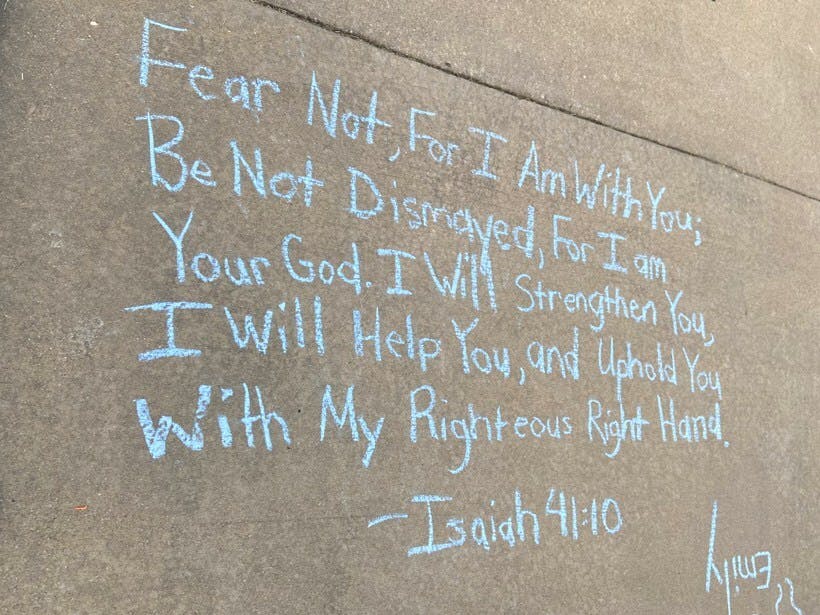 Fear Not, For I Am With You;
Be Not Dismayed, For I am
Your God. I Will Strengthen You,
I Will Help You, and Uphold You
With My Righteous Right Hand.
- Isaiah 41:10
Emily